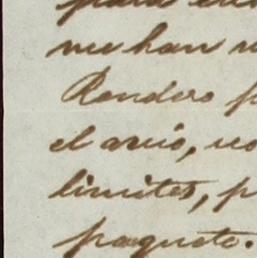 para
me han
Rendero
el avio,
limites, p
paquete.